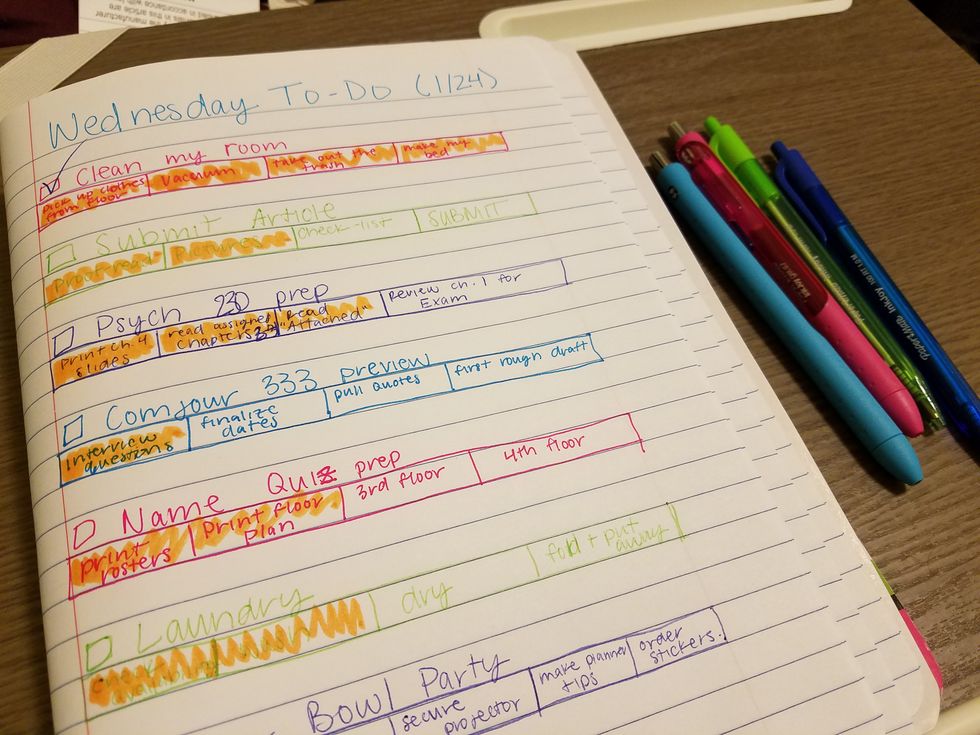 Wednesday To-Do (1/24)
Clean my room
pick up clothes from floor
Vacuum
take out the trash
make my bed
Submit Article
check-list
SUBMIT
Psych 230 prep
print ch. 4 slides
read assigned chapters
Read "Attached"
Review ch. 1 for Exam
Comjour 333 preview
interview questions
finalize dates
pull quotes
first rough draft
Name Quiz prep
print rosters
Print floor plan
3rd floor
4th floor
Laundry
dry
fold + put away
Bowl Party
secure projector
make planner tips
order stickers.
paperMate InkJoy